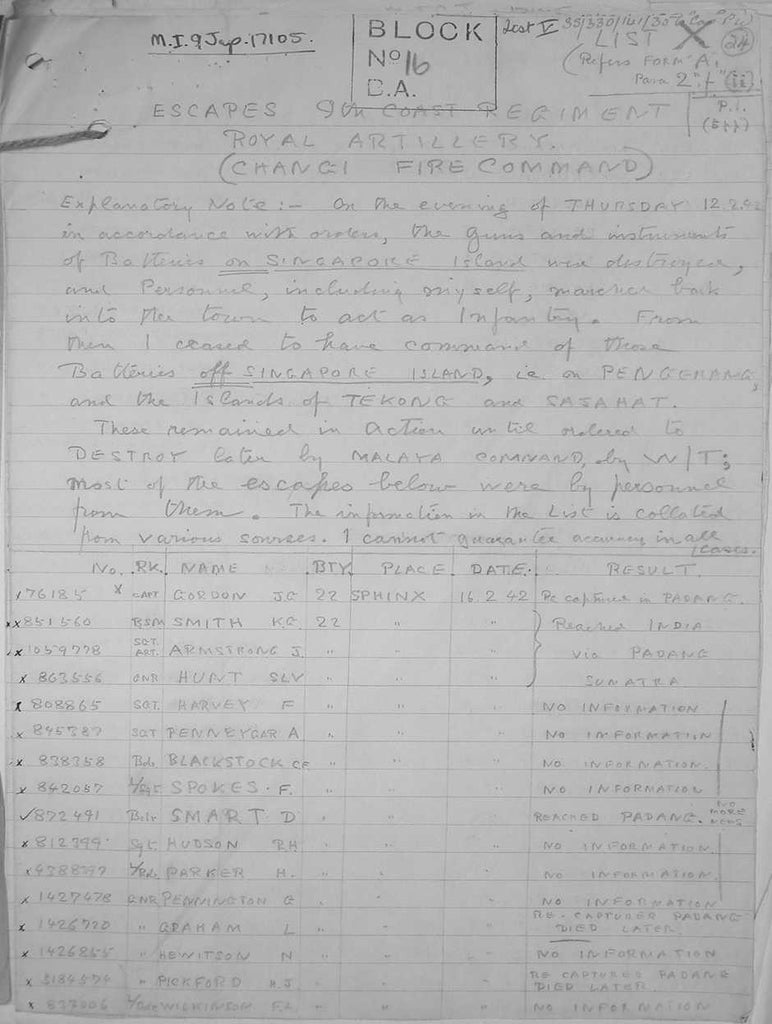 M.I.9 Jap. 17105.
BLOCK
No 16
C.A.
List V
LIST
(Refers FORM "A",
Para 2 "f" (ii)
24
P.1.
ESCAPES 9th COAST REGIMENT
ROYAL ARTILLERY.
(CHANGI FIRE COMMAND)
Explanatory Note :- On the evening of THURSDAY 12.2.42
in accordance with orders, the guns and instruments
of Batteries on SINGAPORE Island were destroyed,
and Personnel, including myself, marched back
into the town to act as Infantry. From
then I ceased to have command of those
Batteries off SINGAPORE ISLAND, i.e. on PENGERANG,
and the Islands of TEKONG and SAJAHAT.
These remained in action until ordered to
DESTROY later by MALAYA COMMAND, by W/T;
most of the escapes below were by personnel
from them. The information in the List is collated
from various sources. I cannot guarantee accuracy in all
cases.
No. RK. NAME BTY PLACE DATE. RESULT.
x 76185 x CAPT GORDON J.G 22 SPHINX 16.2.42 Re captured in PADANG.
xx 851560 BSM SMITH K.G. 22 " " Reached INDIA
x 1059778 SGT. ART. ARMSTRONG J. " " " via PADANG
x 863556 GNR HUNT SLV " " " SUMATRA
x 808865 SGT. HARVEY F " " " NO INFORMATION
x 845387 SGT PENNEYGAR A " " " NO INFORMATION
x 838358 Bdr BLACKSTOCK " " " NO INFORMATION.
x 842057 L/Sgt SPOKES. F. " " " NO INFORMATION
✓872491 Bdr SMART D " " " REACHED PADANG. NO MORE NEWS
x 812799 Sgt HUDSON R.H " " " NO INFORMATION.
x 4388797 PARKER H. " " " NO INFORMATION.
x 1427478 GNR PENNINGTON G " " " NO INFORMATION
x 1426720 " GRAHAM L " " " RE-CAPTURED PADANG
DIED LATER.
x 1426855 " HEWITSON N " " " NO INFORMATION
x 3184574 " PICKFORD H.J " " " RE CAPTURED PADANG
DIED LATER.
x 833006 WILKINSON F.L. " " " NO INFORMATION